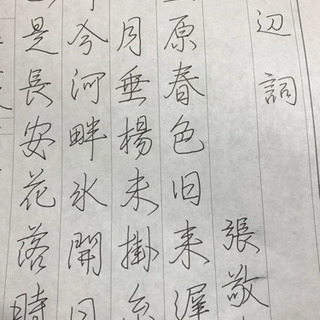 辺詞
張敬
原春色旧来遅
月垂楊未掛糸
今河畔氷開日
是長安花落時